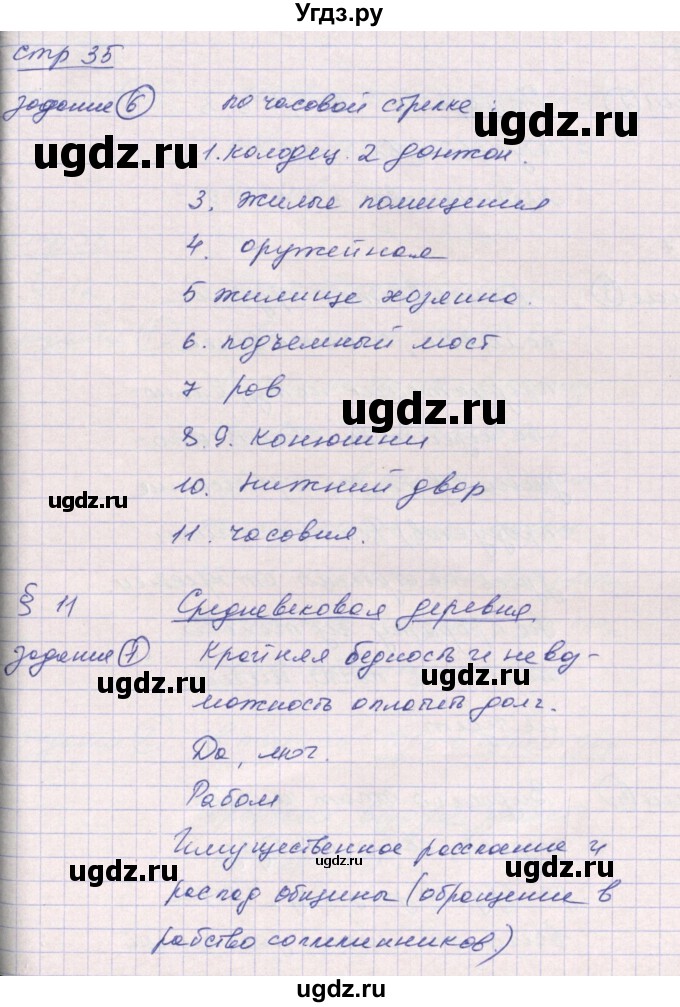 Угдз.ру
стр 35
задание 6 по часовой стрелке:
ugdz.ru ugdz.ru
1. колодец. 2 донжон.
3. жилые помещения
4. оружейная
5 жилище хозяина.
6. подъемный мост
7 ров
ugdz.ru
8.9. конюшни
10. нижний двор
ugdz.ru
11. часовня.
§ 11 Средневековая деревня
задания 1 Крайняя бедность и невоз-
ugdz.ru ugdz.ru
можность оплатить долг.
Да, мог.
Рабом
Имущественное расслоение и
ugdz.ru ugdz.ru
распад общины (обращение в
рабство соплеменников.)
ugdz.ru